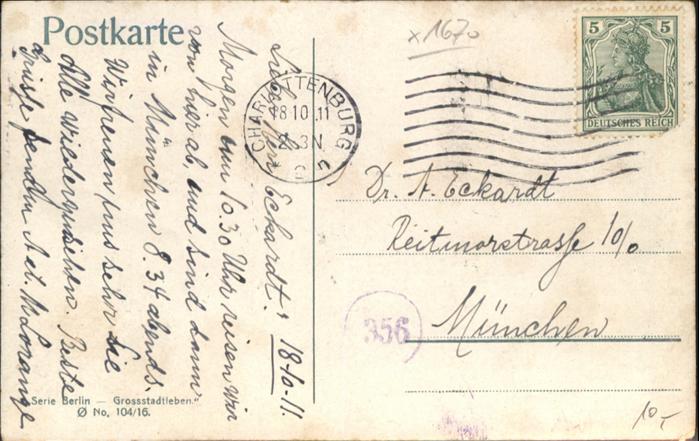 Postkarte
x 1670
5 5
DEUTSCHES REICH
CHARLOTTENBURG
18 10.11
3N
c
Lieber Herr Eckardt! 18.10.11.
Morgen um 10.30 Uhr reisen wir
von hier ab und sind dann
in München 8.34 abends.
Wir freuen uns sehr Sie
Alle wiederzusehen. Beste
Grüsse senden A u. M Lorange
Dr. A. Eckardt
Reitmorstrasse 10/0
München
356
„Serie Berlin – Grossstadtleben."
Ø No. 104/16.
10,-